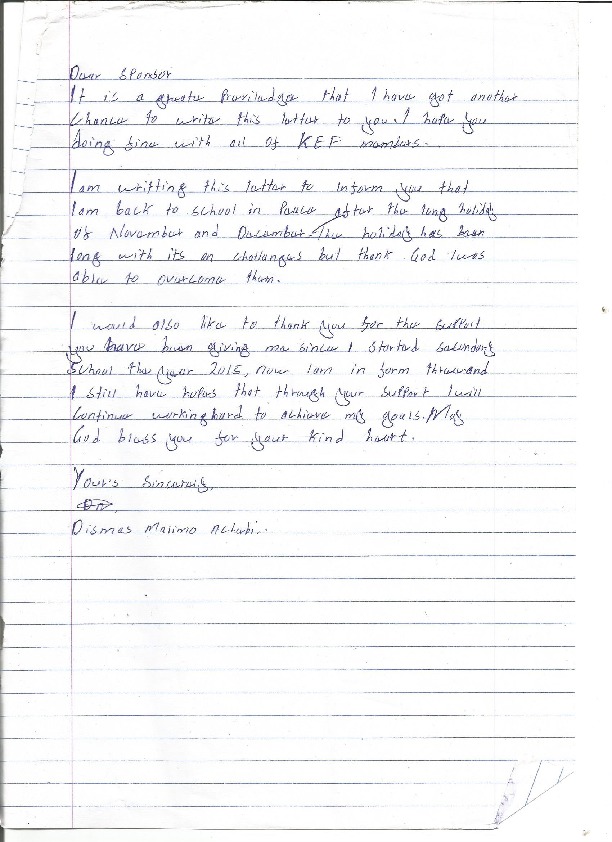 Dear Sponsor
It is a greate Priviladge that I have got another
Chance to write this letter to you. I hope you
doing fine with all of KEF members.
I am writting this letter to inform you that
I am back to school in Peace after the long holiday
of November and December. The holiday has been
long with its on challanges but thank God I was
able to overcome them.
I would also like to thank you for the support
you have been giving me since I started secondary
School the year 2015, now I am in form three and
I still have hopes that through your support I will
Continue working hard to achieve my goals. May
God bless you for your kind heart.
Yours Sincerely,
Dismas Masimo